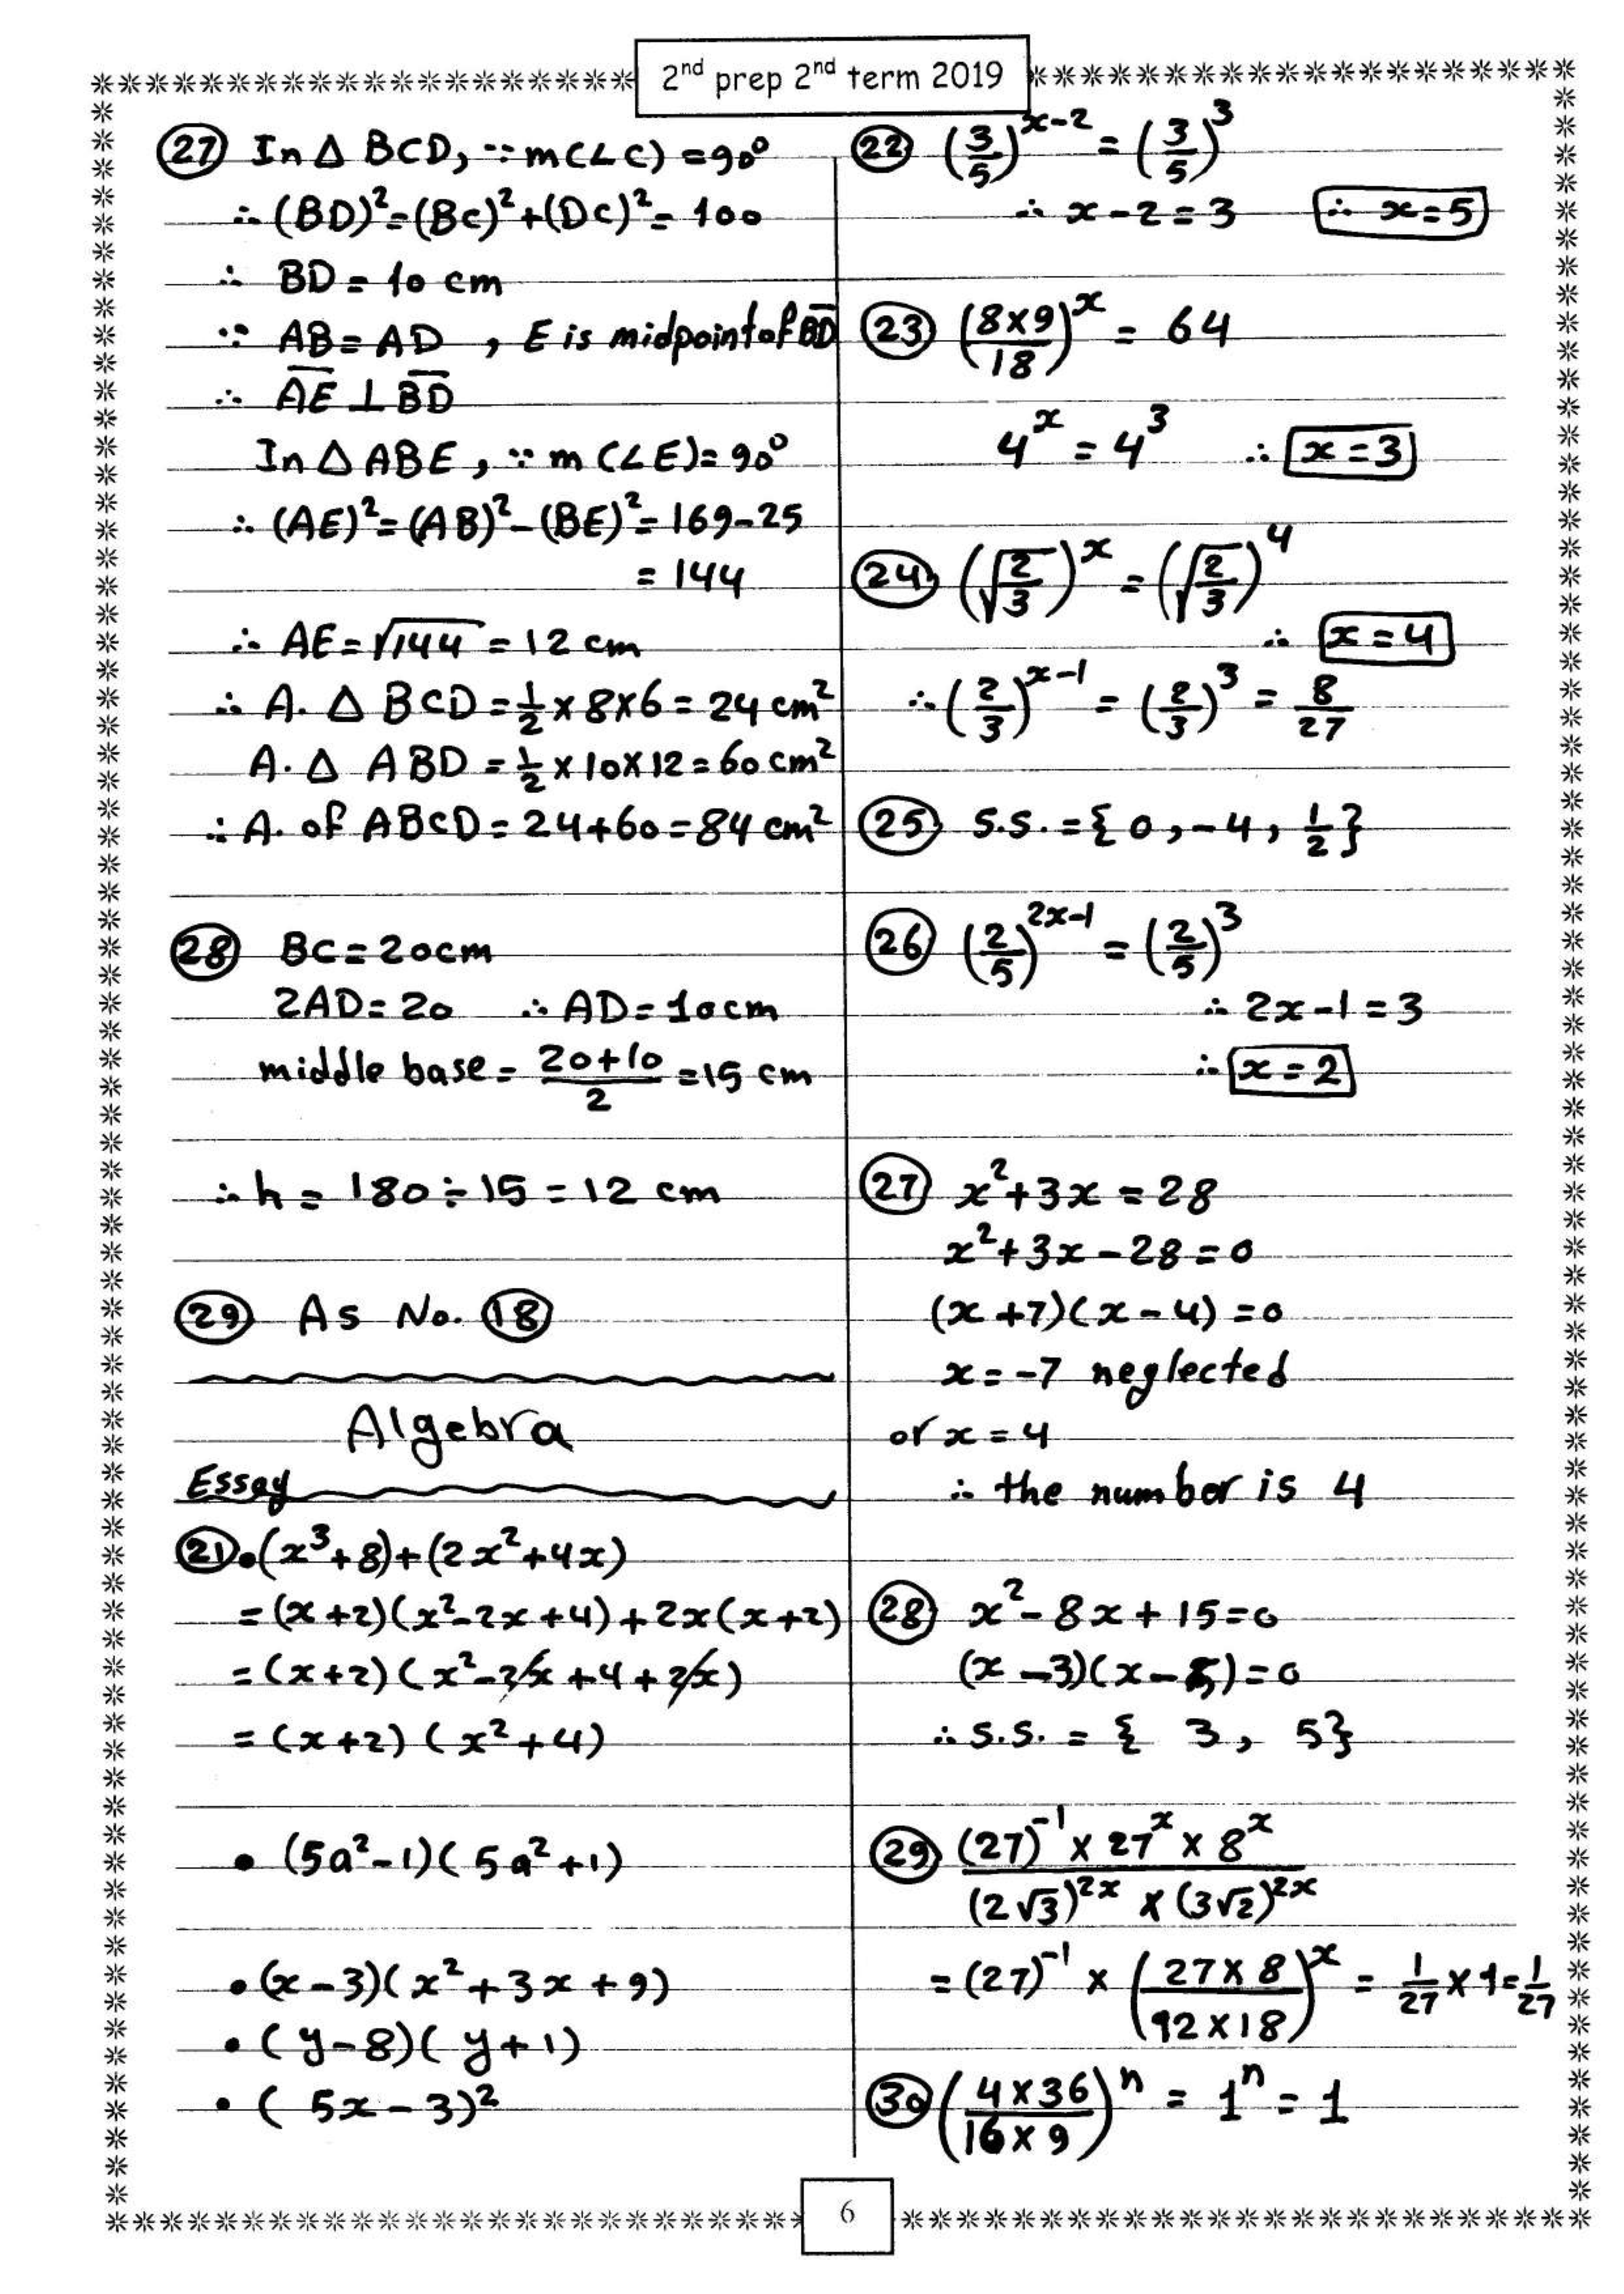 2nd prep 2nd term 2019
(27) In Δ BCD, ∵ m(∠C) = 90°
∴ (BD)² = (BC)² + (DC)² = 100
∴ BD = 10 cm
∵ AB = AD , E is midpoint of BD
∴ AE ⊥ BD
In Δ ABE, ∵ m(∠E) = 90°
∴ (AE)² = (AB)² - (BE)² = 169 - 25
= 144
∴ AE = √144 = 12 cm
∴ A. Δ BCD = 1/2 × 8 × 6 = 24 cm²
A. Δ ABD = 1/2 × 10 × 12 = 60 cm²
∴ A. of ABCD = 24 + 60 = 84 cm²
(28) BC = 20 cm
2AD = 20 ∴ AD = 10 cm
middle base = (20+10)/2 = 15 cm
∴ h = 180 ÷ 15 = 12 cm
(29) As No. (18)
Algebra
Essay
(21) • (x³ + 8) + (2x² + 4x)
= (x+2)(x² - 2x + 4) + 2x(x+2)
= (x+2)(x² - 2x + 4 + 2x)
= (x+2)(x² + 4)
• (5a² - 1)(5a² + 1)
• (x - 3)(x² + 3x + 9)
• (y - 8)(y + 1)
• (5x - 3)²
(22) (3/5)^(x-2) = (3/5)³
∴ x - 2 = 3 ∴ x = 5
(23) (8×9/18)^x = 64
4^x = 4³ ∴ x = 3
(24) (√(2/3))^x = (√(2/3))⁴
∴ x = 4
∴ (2/3)^(x-1) = (2/3)³ = 8/27
(25) S.S. = {0, -4, 1/2}
(26) (2/5)^(2x-1) = (2/5)³
∴ 2x - 1 = 3
∴ x = 2
(27) x² + 3x = 28
x² + 3x - 28 = 0
(x + 7)(x - 4) = 0
x = -7 neglected
or x = 4
∴ the number is 4
(28) x² - 8x + 15 = 0
(x - 3)(x - 5) = 0
∴ S.S. = { 3, 5}
(29) ((27)⁻¹ × 27^x × 8^x)/((2√3)^(2x) × (3√2)^(2x))
= (27)⁻¹ × (27×8/12×18)^x = 1/27 × 1 = 1/27
(30) (4×36/16×9)^n = 1^n = 1
6